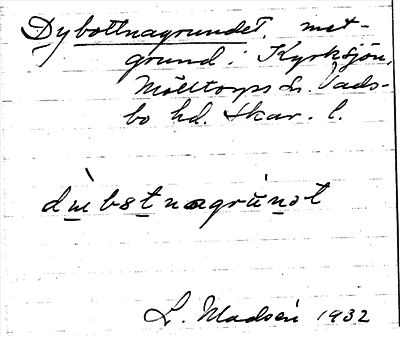 Dybottnagrundet, met-
grund i Kyrksjön,
Mölltorps sn. Vads-
bo hd. Skar. l.
dẁbotnagrúnət
L. Madsén 1932